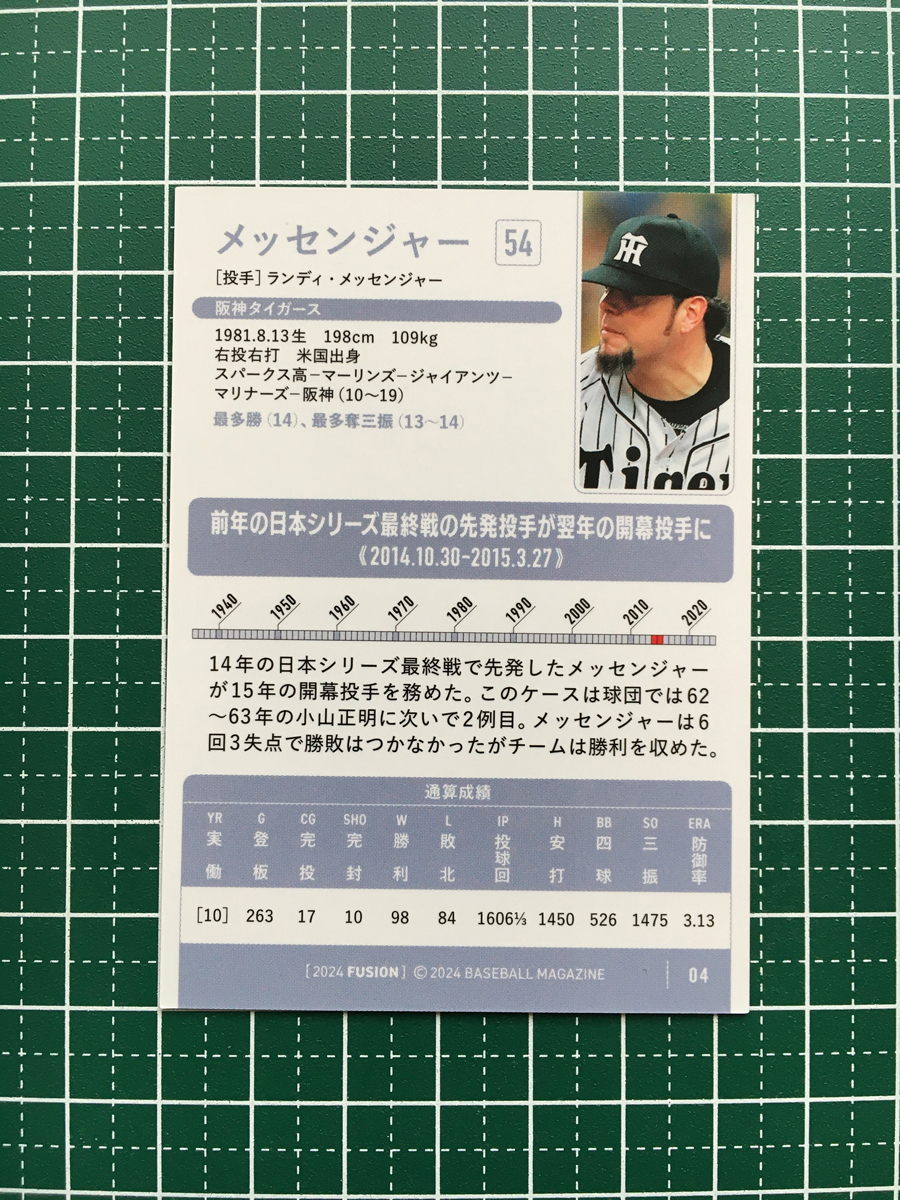 メッセンジャー 54
［投手］ランディ・メッセンジャー
阪神タイガース
1981.8.13生 198cm 109kg
右投右打 米国出身
スパークス高－マーリンズ－ジャイアンツ－
マリナーズ－阪神（10～19）
最多勝（14）、最多奪三振（13～14）
TH
Tiger
前年の日本シリーズ最終戦の先発投手が翌年の開幕投手に
《2014.10.30-2015.3.27》
1940 1950 1960 1970 1980 1990 2000 2010 2020
14年の日本シリーズ最終戦で先発したメッセンジャー
が15年の開幕投手を務めた。このケースは球団では62
～63年の小山正明に次いで2例目。メッセンジャーは6
回3失点で勝敗はつかなかったがチームは勝利を収めた。
通算成績
YR G CG SHO W L IP H BB SO ERA
実働 登板 完投 完封 勝利 敗北 投球回 安打 四球 三振 防御率
［10］ 263 17 10 98 84 1606⅓ 1450 526 1475 3.13
［2024 FUSION］ ©2024 BASEBALL MAGAZINE 04